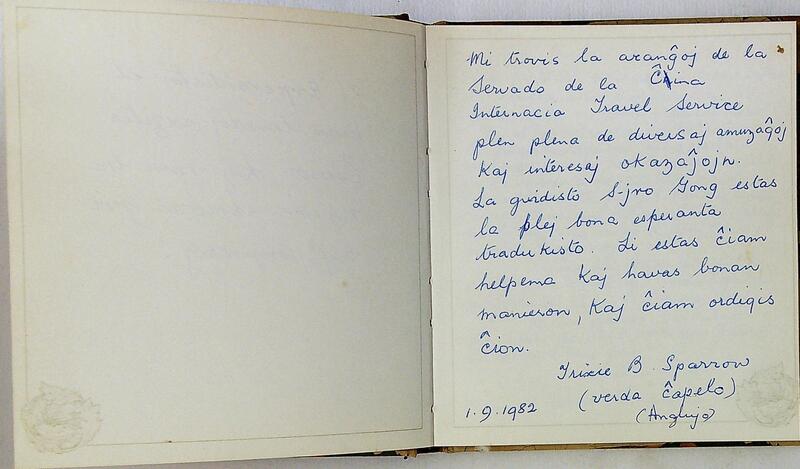 Mi trovis la aranĝoj de la
Servado de la Ĉina
Internacia Travel Service
plen plena de diversaj amuzaĝoj
Kaj interesaj okazaĵojn.
La gvidisto S-jro Gong estas
la plej bona esperanta
tradukisto. Li estas ĉiam
helpema Kaj havas bonan
manieron, Kaj ĉiam ordigis
ĉion.
Trixie B. Sparrow
(verda ĉapelo)
(Anglujo)
1.9.1982